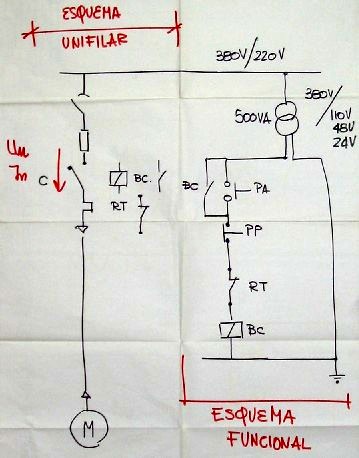 ESQUEMA
UNIFILAR
380V/220V
500VA
380V/
110V
48V
24V
Un
In
C
BC
RT
BC
PA
PP
RT
BC
M
ESQUEMA
FUNCIONAL